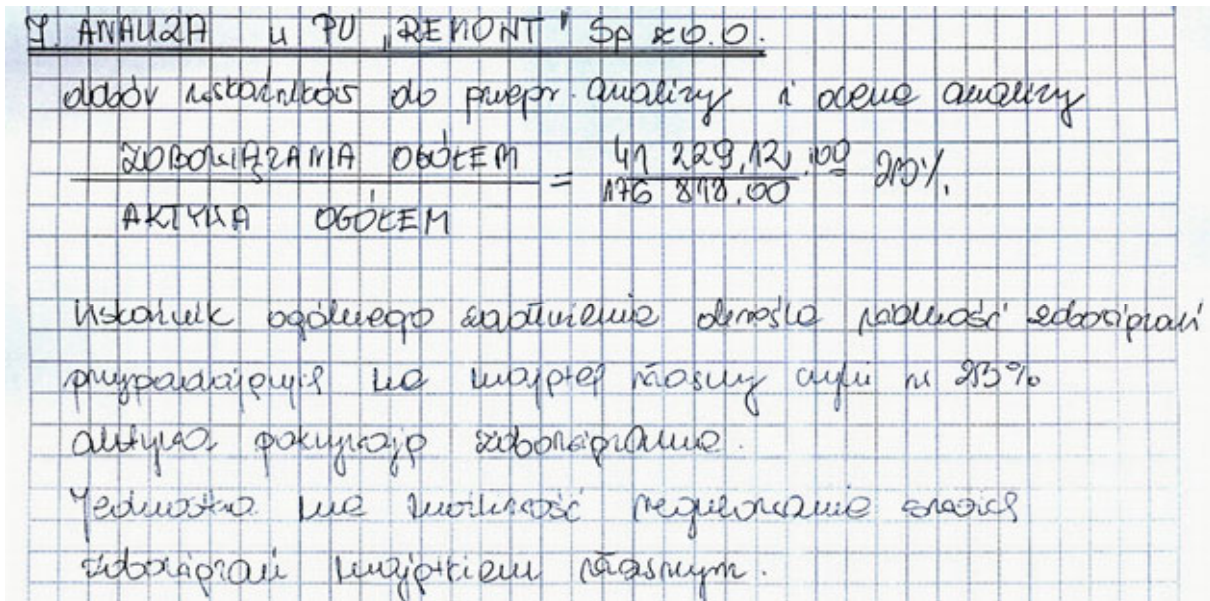 7. ANALIZA w PU „REMONT" Sp. z o.o.
dobór wskaźników do przepr. analizy i ocena analizy
ZOBOWIĄZANIA OGÓŁEM = 41 229,12 . 100 = 23%
AKTYWA OGÓŁEM 176 878,00
Wskaźnik ogólnego zadłużenia określa wielkość zobowiązań
przypadających na majątek własny czyli w 23%
aktywa pokrywają zobowiązania.
Jednostka ma możliwość regulowania swoich
zobowiązań majątkiem własnym.